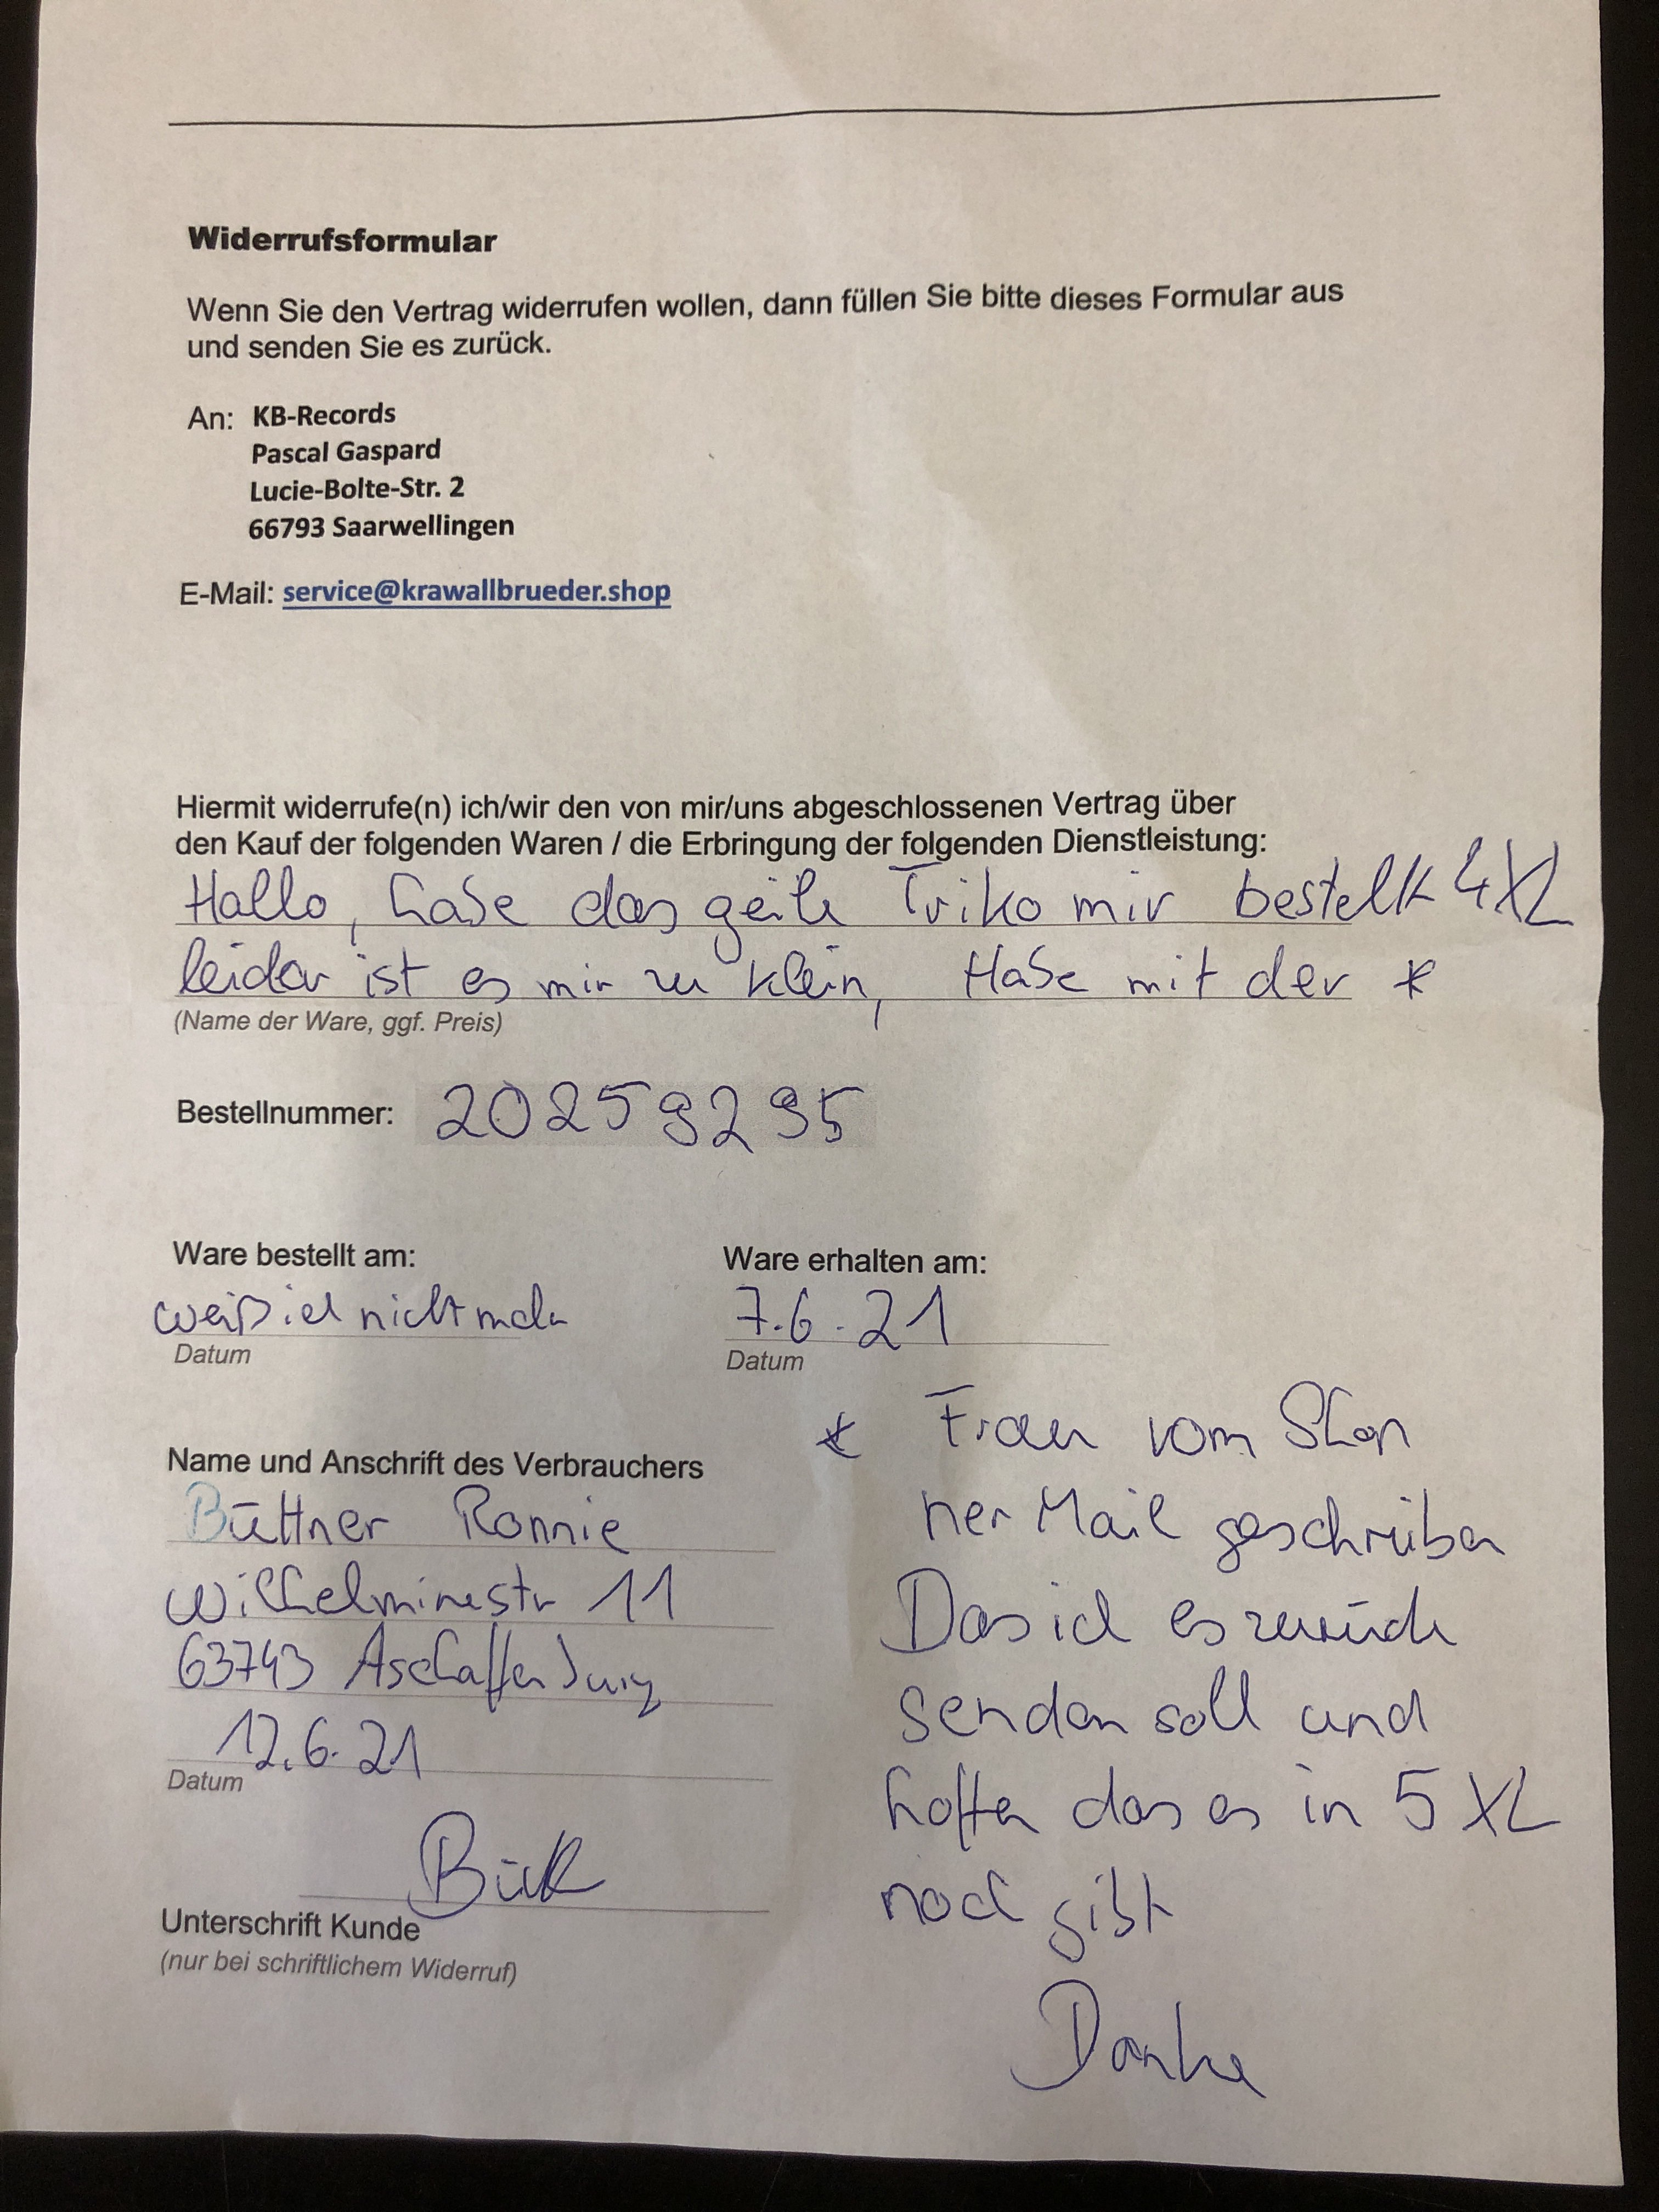 Widerrufsformular
Wenn Sie den Vertrag widerrufen wollen, dann füllen Sie bitte dieses Formular aus
und senden Sie es zurück.
An: KB-Records
Pascal Gaspard
Lucie-Bolte-Str. 2
66793 Saarwellingen
E-Mail: service@krawallbrueder.shop
Hiermit widerrufe(n) ich/wir den von mir/uns abgeschlossenen Vertrag über
den Kauf der folgenden Waren / die Erbringung der folgenden Dienstleistung:
Hallo, habe das geile Triko mir bestellt 4XL
leider ist es mir zu klein, Habe mit der *
(Name der Ware, ggf. Preis)
Bestellnummer: 20259295
Ware bestellt am:
weiß ich nicht mehr
Datum
Ware erhalten am:
7.6.21
Datum
Name und Anschrift des Verbrauchers
Büttner Ronnie
Wilhelminestr 11
63743 Aschaffenburg
12.6.21
Datum
Unterschrift Kunde
(nur bei schriftlichem Widerruf)
* Frau vom Shop
ner Mail geschrieben
Das ich es zurück
senden soll und
hoffen das es in 5XL
noch gibt
Danke